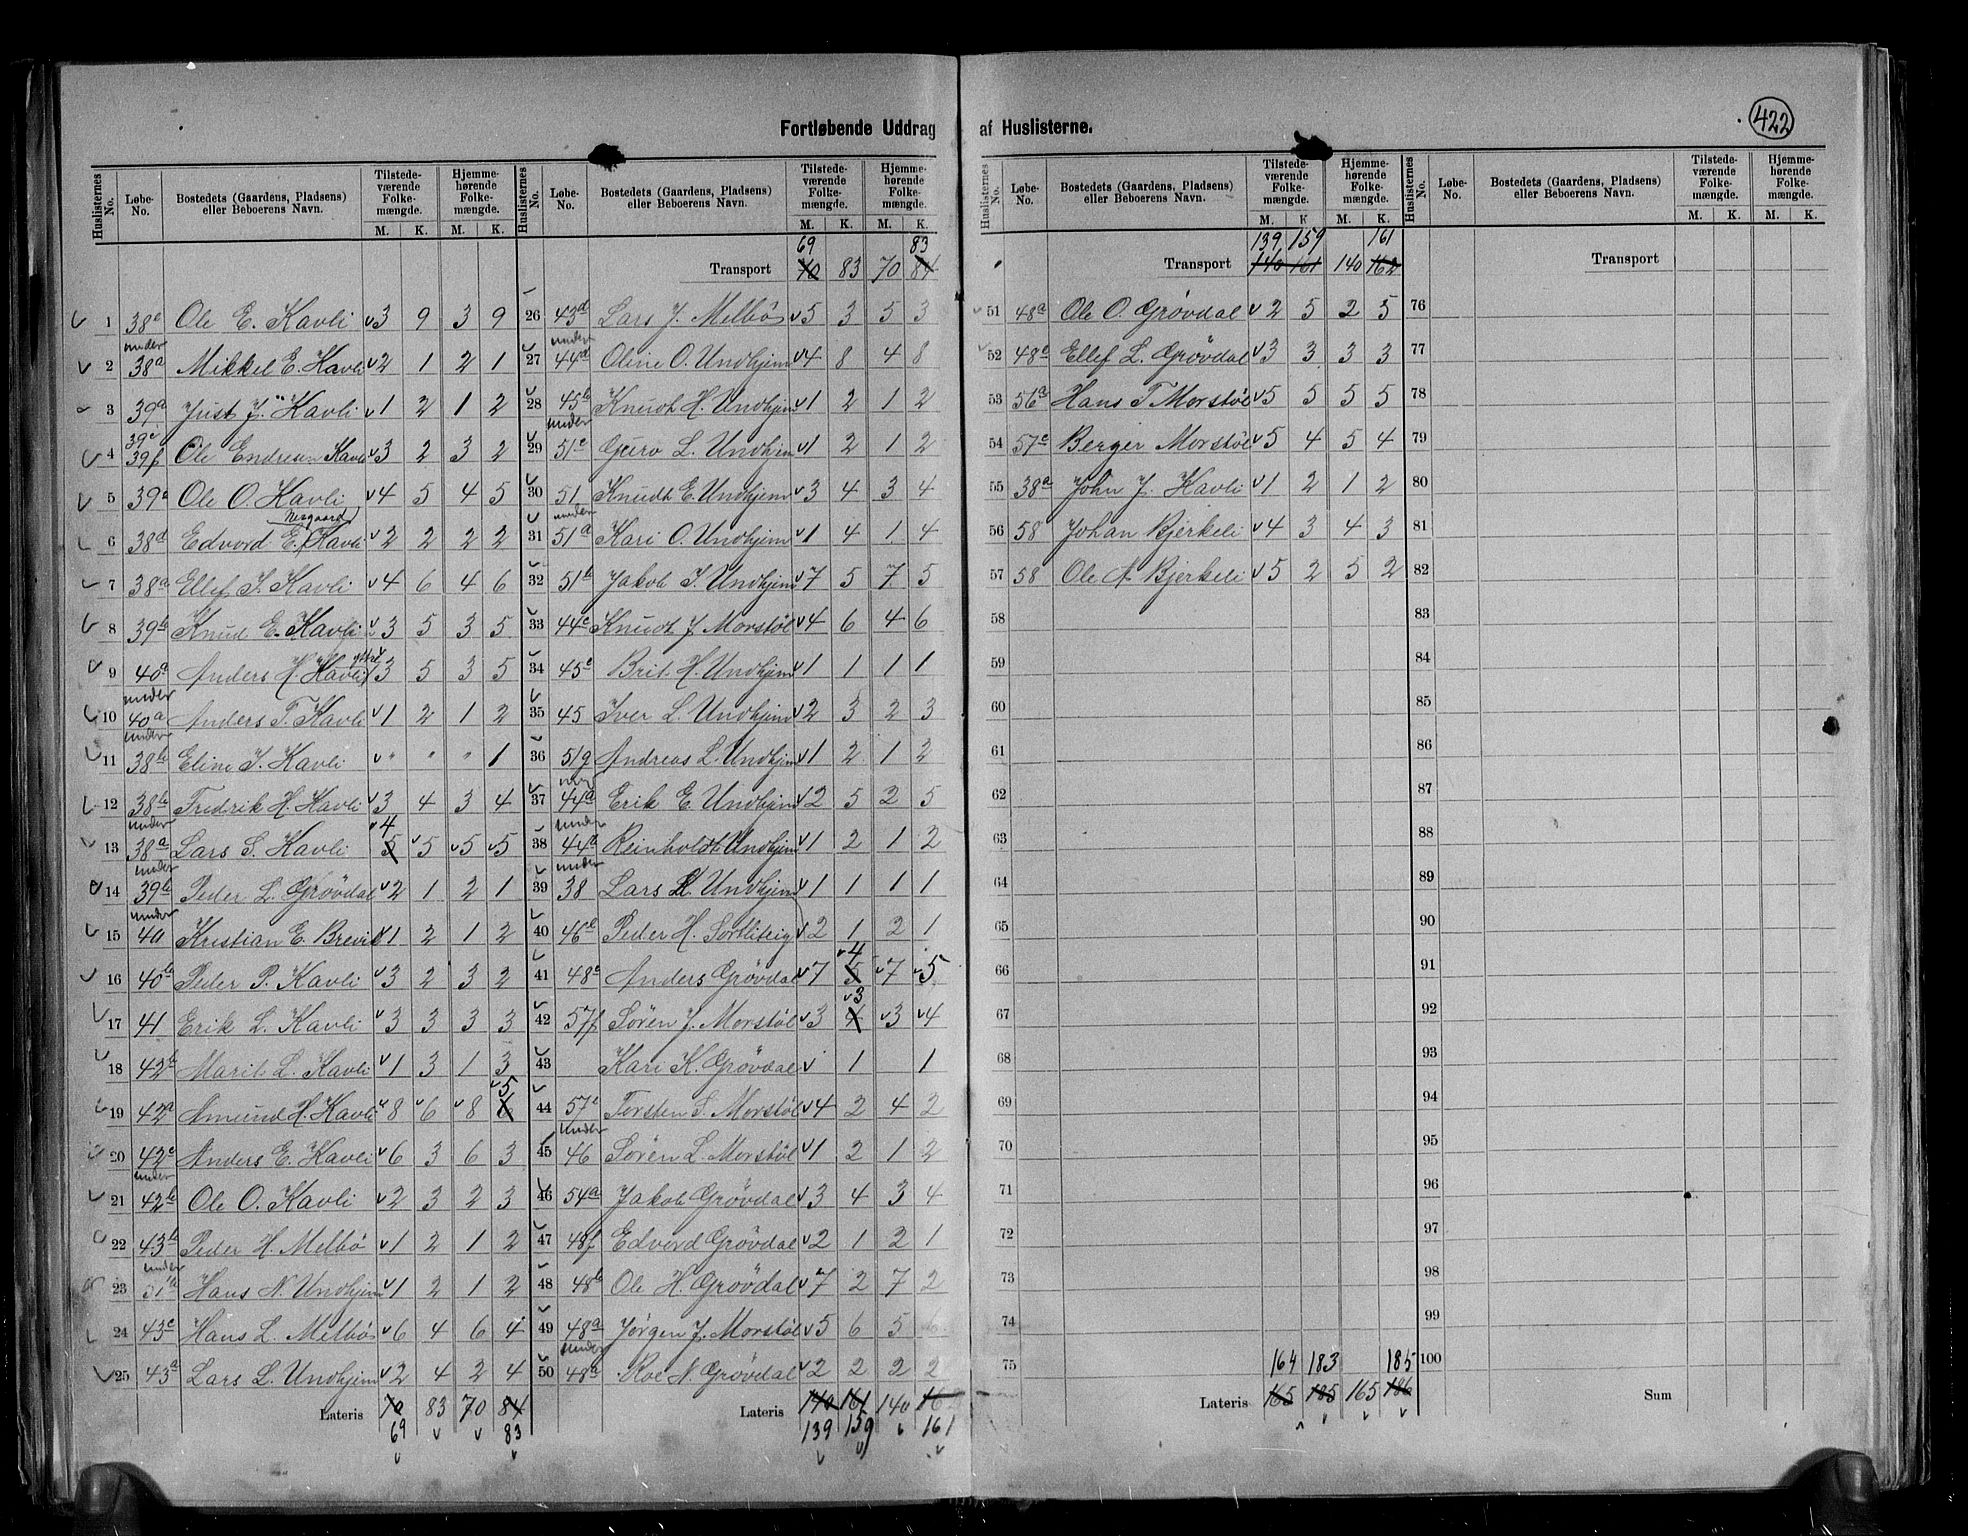 422
Fortløbende Uddrag af Huslisterne.
Huslisternes No. Løbe-No. Bostedets (Gaardens, Pladsens) eller Beboerens Navn. Tilstedeværende Folkemængde. M. K. Hjemmehørende Folkemængde. M. K.
1 38e Ole E. Kavli v3 9 3 9
2 under 38a Mikkel E. Kavli v2 1 2 1
3 39a Just J. Kavli v1 2 1 2
4 39e 39f Ole Endresen Kavli v3 2 3 2
5 39a Ole O. Kavli v4 5 4 5
6 38d Edvord E. Kavli Nesgaard v2 2 2 2
7 38a Ellef J. Kavli v4 6 4 6
8 39b Knud E. Kavli v3 5 3 5
9 40a Anders H. Kavli 3 5 3 5
10 under 40a Anders T. Kavli v1 2 1 2
11 under 38b Eline J. Kavli v" " " 1
12 38b Fredrik H. Kavli v3 4 3 4
13 under 38a Lars S. Kavli v4 5 v5 v5 v5
14 under 39b Peder L. Grövdal v2 1 2 1
15 under 40 Kristian E. Brevik v1 2 1 2
16 40b Peder P. Kavli v3 2 3 2
17 41 Erik L. Kavli v3 3 3 3
18 42b Marit L. Kavli v1 3 1 3
19 42a Amund H. Kavli v8 v6 v8 v5 6
20 42c Anders E. Kavli v6 3 6 3
21 under 42b Ole O. Kavli v2 3 2 3
22 43b Peder H. Melbö v1 2 1 2
23 under 51a Hans N. Undhjem v1 2 1 2
24 43c Hans L. Melbö v6 4 6 4
25 43a Lars L. Undhjem v2 4 2 4
Lateris 70 83 70 84
69 83
Huslisternes No. Løbe-No. Bostedets (Gaardens, Pladsens) eller Beboerens Navn. Tilstedeværende Folkemængde. M. K. Hjemmehørende Folkemængde. M. K.
69 83
Transport 70 83 70 84
26 43d Lars J. Melbö v5 3 5 3
27 under 44a Oline O. Undhjem v4 8 4 8
28 45b Knudt H. Undhjem v1 2 1 2
29 under 51c Guro L. Undhjem v1 2 1 2
30 51 Knudt E. Undhjem v3 4 3 4
31 under 51a Kari O. Undhjem v1 4 1 4
32 51b Jakob J. Undhjem v7 5 7 5
33 44c Knudt J. Morstöl v4 6 4 6
34 45c Brit H. Undhjem v1 1 1 1
35 45 Iver L. Undhjem v2 3 2 3
36 51g Andreas L. Undhjem v1 2 1 2
37 44a Erik E. Undhjem v2 5 2 5
38 under 44a Reinholdt Undhjem v1 2 1 2
39 under 38 Lars L. Undhjem v1 1 1 1
40 46b Peder H. Sortliteig v2 1 2 1
41 48c Anders Grövdal v7 v4 5 v7 v5
42 57f Sören J. Morstöl v3 v3 4 v3 v4
43 Kari K. Grövdal v 1 1
44 57c Torsten S. Morstöl v4 2 4 2
45 under 46 Sören L. Morstöl v1 2 1 2
46 54a Jakob Grövdal v3 4 3 4
47 48f Edvord Grövdal v2 1 2 1
48 48b Ole H. Grövdal v7 2 7 2
49 48a Jörgen J. Morstöl v5 6 5 6
50 under 48a Roe N. Grövdal v2 2 2 2
Lateris 140 161 140 16
139 159 161
Huslisternes No. Løbe-No. Bostedets (Gaardens, Pladsens) eller Beboerens Navn. Tilstedeværende Folkemængde. M. K. Hjemmehørende Folkemængde. M. K.
139 159 161
Transport 140 161 140 162
51 48a Ole O. Grövdal v2 5 2 5
52 48e Ellef L. Grövdal v3 3 3 3
53 56a Hans T Morstöl v5 5 5 5
54 57e Berger Morstöl v5 4 5 4
55 38a John J. Kavli v1 2 1 2
56 58 Johan Bjerkeli v4 3 4 3
57 58 Ole A. Bjerkeli v5 2 5 2
58
59
60
61
62
63
64
65
66
67
68
69
70
71
72
73
74
75
164 183 185
Lateris 165 185 165 186
Huslisternes No. Løbe-No. Bostedets (Gaardens, Pladsens) eller Beboerens Navn. Tilstedeværende Folkemængde. M. K. Hjemmehørende Folkemængde. M. K.
Transport
76
77
78
79
80
81
82
83
84
85
86
87
88
89
90
91
92
93
94
95
96
97
98
99
100
Sum